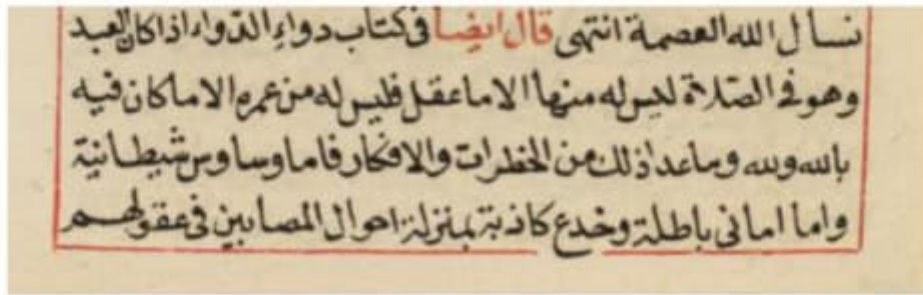 نسأل الله العصمة انتهى قال ايضاً فى كتاب دواء الدواء اذا كان العبد
وهو فى الصّلاة ليس له منها الا ما عقل فليس له من عمره الا ما كان فيه
بالله ولله وما عدا ذلك من الخطرات والافكار فاما وساوس شيطانية
واما امانى باطلة وخدع كاذبة بمنزلة احوال المصابين فى عقولهم